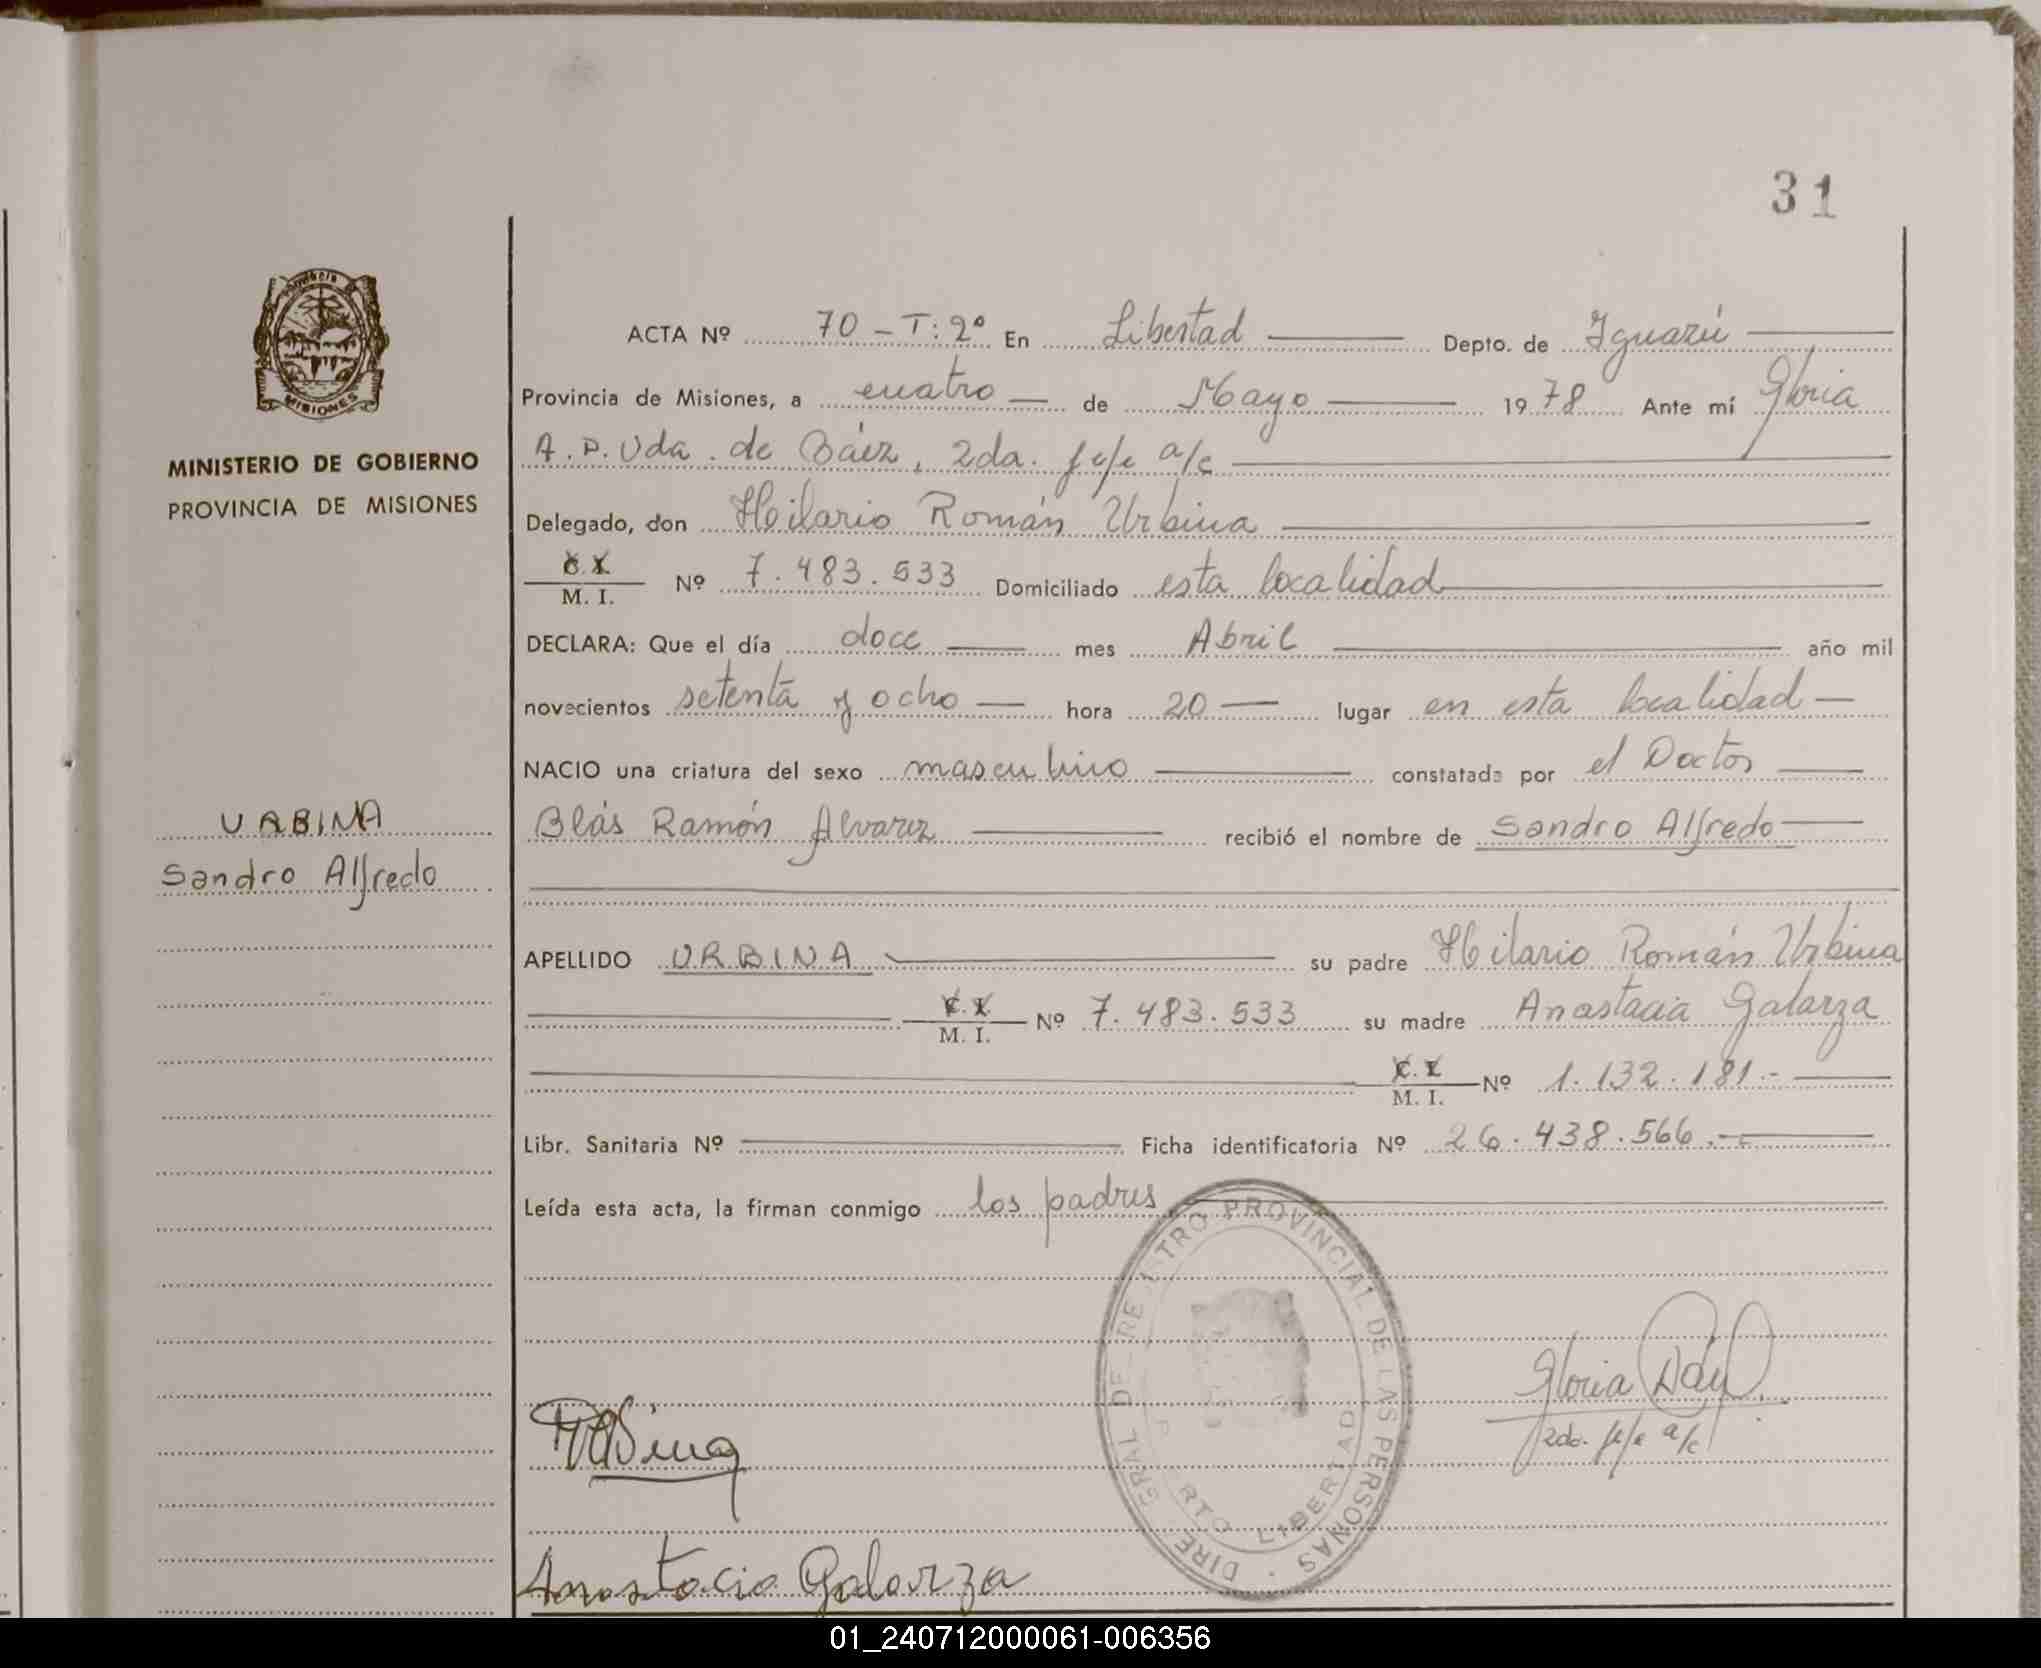 31
Provincia de
MISIONES
MINISTERIO DE GOBIERNO
PROVINCIA DE MISIONES
URBINA
Sandro Alfredo
ACTA Nº 70 - T: 2º En Libertad Depto. de Iguazú
Provincia de Misiones, a cuatro de Mayo 1978 Ante mí Gloria
A. P. Vda. de Báez, 2da. jefe a/c
Delegado, don Hilario Román Urbina
C. I.
M. I. Nº 7.483.533 Domiciliado esta localidad
DECLARA: Que el día doce mes Abril año mil
novecientos setenta y ocho hora 20 lugar en esta localidad
NACIO una criatura del sexo masculino constatada por el Doctor
Blás Ramón Alvarez recibió el nombre de Sandro Alfredo
APELLIDO URBINA su padre Hilario Román Urbina
C. I.
M. I. Nº 7.483.533 su madre Anastacia Galarza
C. I.
M. I. Nº 1.132.181.-
Libr. Sanitaria Nº Ficha identificatoria Nº 26.438.566.-
Leída esta acta, la firman conmigo los padres
DIRE ERAL DE RE TRO PROVINCIAL DE LAS PERSONAS
P RTO LIBERTAD
Gloria
2da. jefe a/c
Anastacia Galarza
01_240712000061-006356